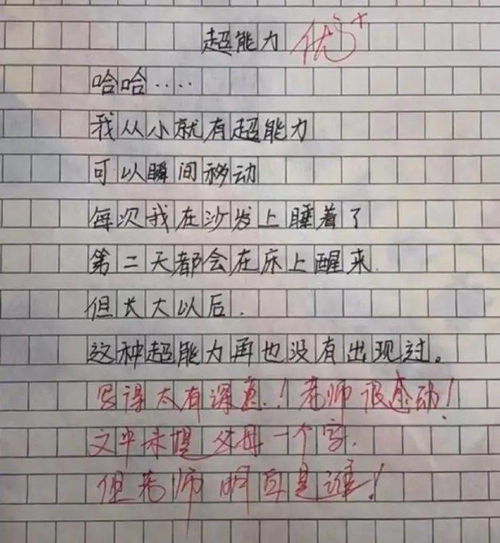 超能力 优+
哈哈.....
我从小就有超能力
可以瞬间移动
每次我在沙发上睡着了
第二天都会在床上醒来.
但长大以后.
这种超能力再也没有出现过。
写得太有深意.!老师很感动!
文中未提父母一个字.
但老师明白是谁!